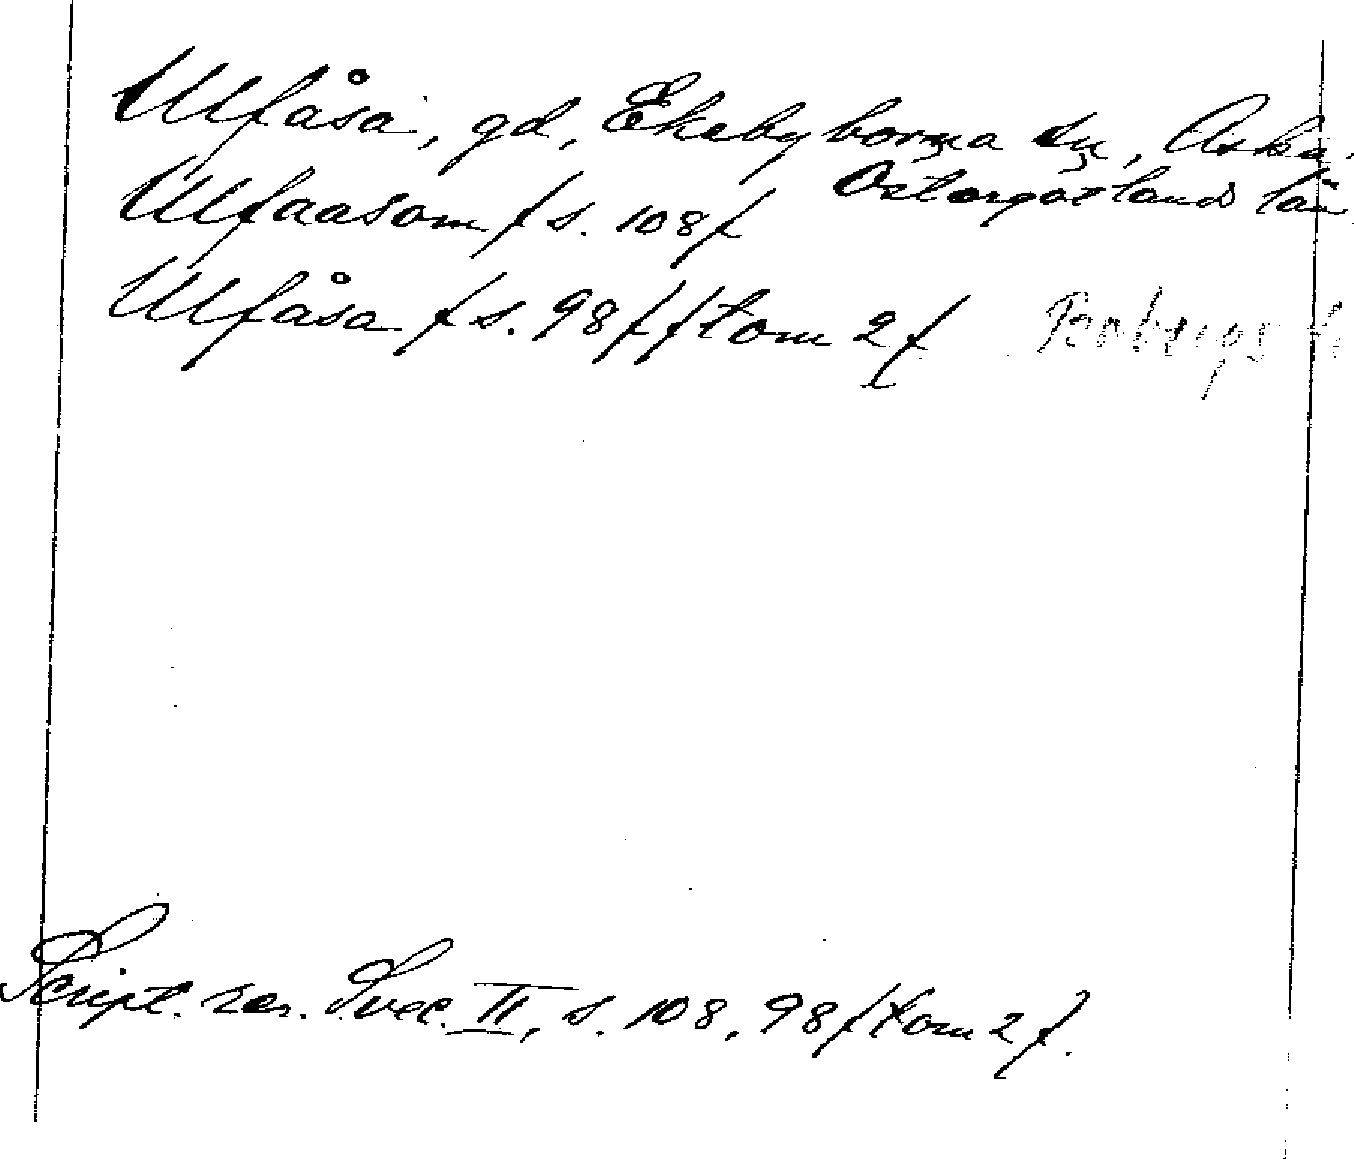 Ulfåsa, gd, Ekebyborna sn, Aska.
Östergötlands län
Ulfaasom / s. 108 /
Ulfåsa / s. 98 / / tom 2 /
Script. rer. Svec. II, s. 108, 98 / tom 2 /.